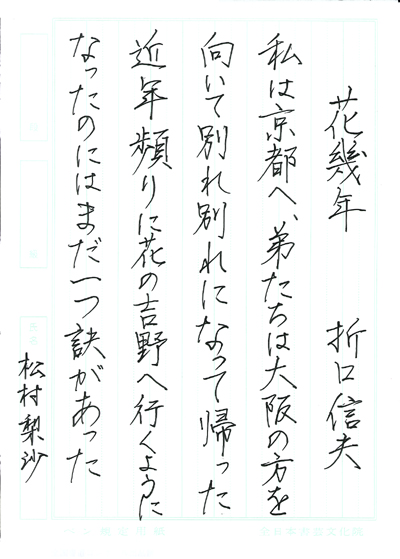 花幾年 折口信夫
私は京都へ、弟たちは大阪の方を
向いて別れ別れになって帰った
近年頻りに花の吉野へ行くように
なったのにはまだ一つ訣があった
松村梨沙